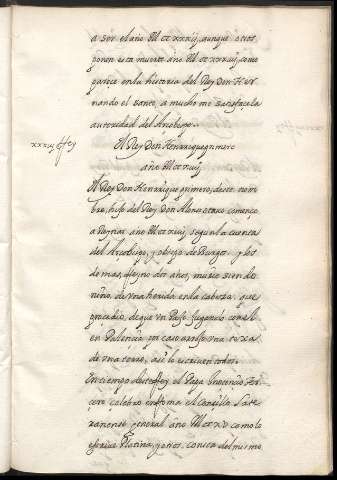 a ser el año M cc xxxiij, aunque otros
ponen esta muerte año M cc xxxiiij, como
parece en la historia del Rey Don Her
nando el santo, a mucho me satisface la
autoridad del Arçobispo.
xxxiiij Rey
El Rey Don Henrrique primero
año M cc xiiij
El Rey Don Henrrique primero, deste nom
bre, hijo del Rey Don Alonso octavo començo
a Reynar año M cc xiiij, segun la cuenta
del Arçobispo, y obispo de Burgos, y los
demas, Reyno dos años, murio siendo
niño, de una herida en la cabeza, que
procedio, de que un Paje jugando con el
en Palencia por caso arrojo una texa
de una torre, asi lo escriven todos.
En tiempo deste Rey el Papa Inocencio ter
cero celebro en Roma el Concilio Late
ranense general año M cc xv como lo
escrive Platina, y otros, consta del mismo